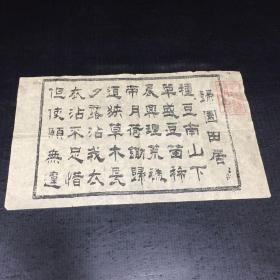 歸園田居
種豆南山下
草盛豆苗稀
晨興理荒穢
帶月荷鋤歸
道狹草木長
夕露沾我衣
衣沾不足惜
但使願無違